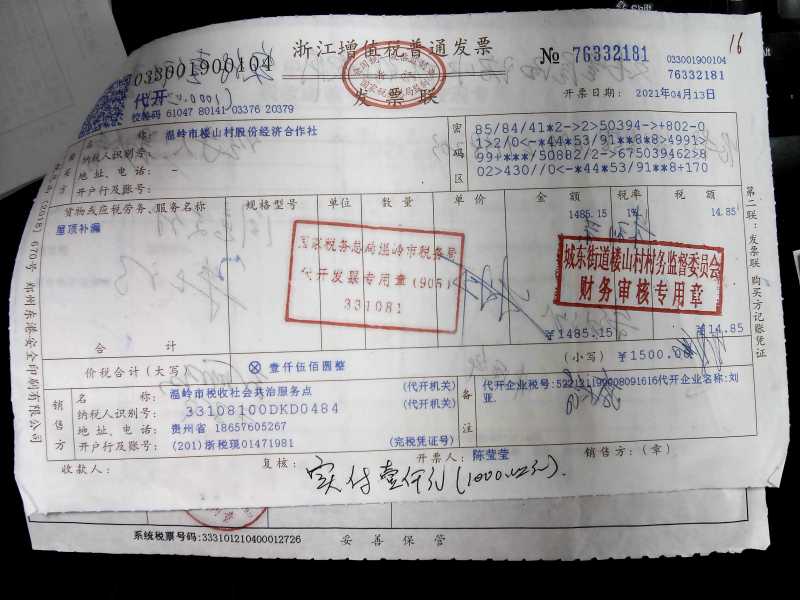 浙江增值税普通发票
发票联
国家税务总局监制
033001900104
代开
校验码 61047 80141 03376 20379
№ 76332181
033001900104
76332181
16
开票日期: 2021年04月13日
购买方
名 称: 温岭市楼山村股份经济合作社
纳税人识别号:
地址、电话: -
开户行及账号:
密码区
85/84/41*2->2>50394->+802-0
1>2/0<-*44*53/91**8*8>4991>
99+***/50882/2->675039462>8
02>430//0<-*44*53/91**8+170
货物或应税劳务、服务名称 规格型号 单位 数量 单价 金额 税率 税额
屋顶补漏 1485.15 1% 14.85
国家税务总局温岭市税务局
代开发票专用章(905)
331081
城东街道楼山村村务监督委员会
财务审核专用章
合计 ¥1485.15 ¥14.85
价税合计(大写) ⊗壹仟伍佰圆整 (小写) ¥1500.00
销售方
名 称: 温岭市税收社会共治服务点 (代开机关)
纳税人识别号: 33108100DKD0484 (代开机关)
地址、电话: 贵州省 18657605267
开户行及账号: (201)浙税现01471981 (完税凭证号)
备注
代开企业税号:522121199008091616代开企业名称:刘
亚.
收款人: 复核: 开票人: 陈莹莹 销售方:(章)
第二联:发票联 购买方记账凭证
实付壹仟元(1000.00元).
系统税票号码:333101210400012726 妥善保管